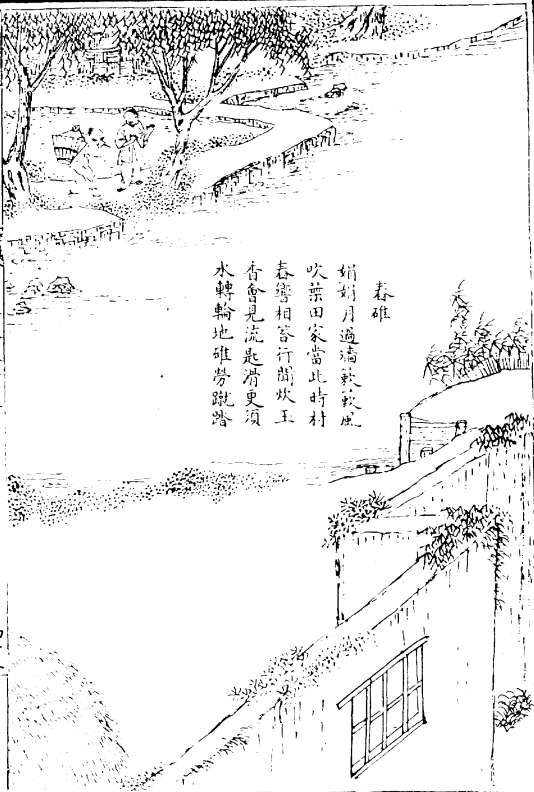 舂碓
娟娟月過墻簌簌風
吹葉田家當此時村
舂響相答行聞炊玉
香會見流匙滑更須
水轉輪地碓勞蹴踏